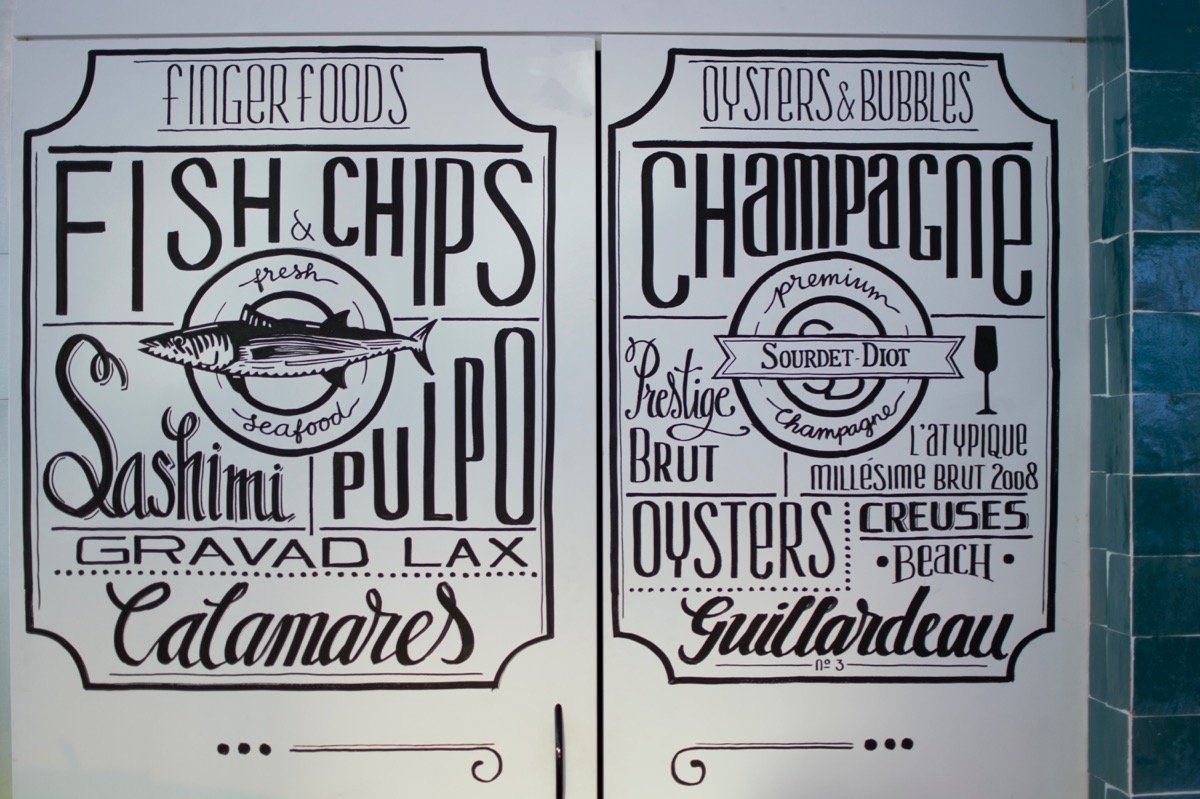 FINGER FOODS
FISH & CHIPS
fresh
seafood
Sashimi
PULPO
GRAVAD LAX
Calamares
OYSTERS & BUBBLES
CHAMPAGNE
premium
SOURDET-DIOT
SD
champagne
Prestige
BRUT
L'ATYPIQUE
MILLÉSIME BRUT 2008
OYSTERS
CREUSES
• BEACH •
Guillardeau
nº 3